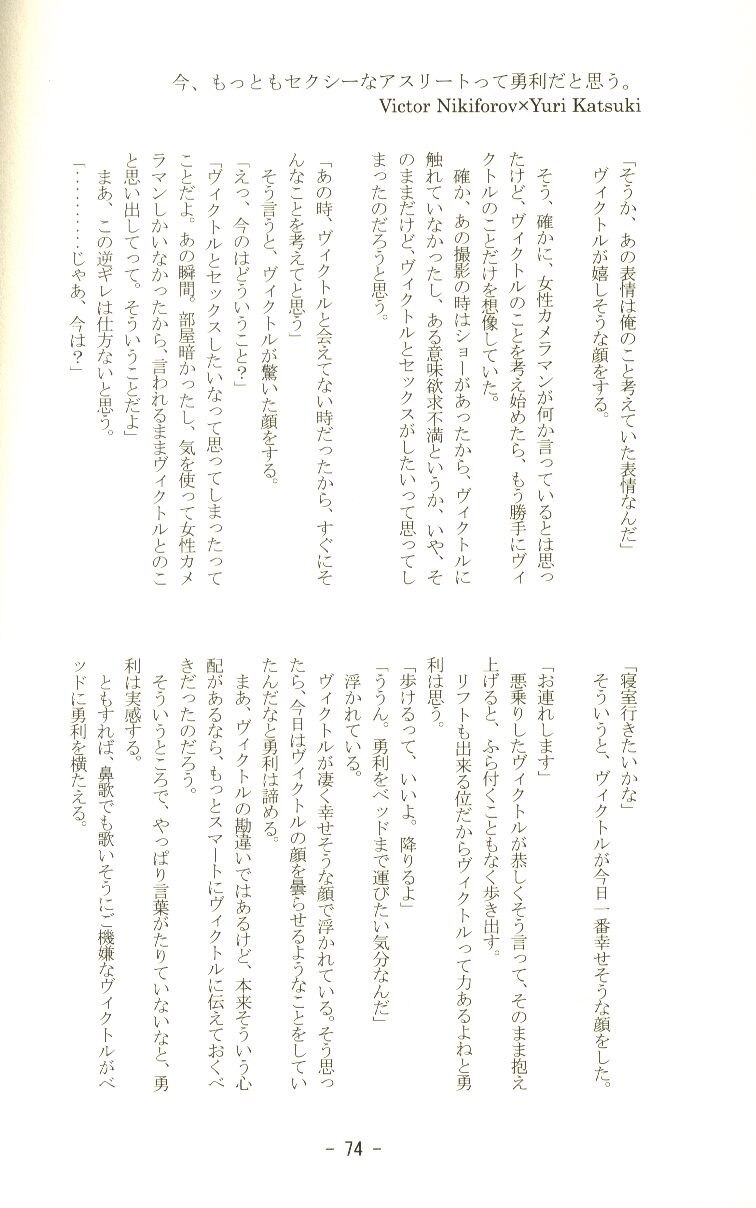 今、もっともセクシーなアスリートって勇利だと思う。
Victor Nikiforov×Yuri Katsuki
「そうか、あの表情は俺のこと考えていた表情なんだ」
ヴィクトルが嬉しそうな顔をする。
そう、確かに、女性カメラマンが何か言っているとは思っ
たけど、ヴィクトルのことを考え始めたら、もう勝手にヴィ
クトルのことだけを想像していた。
確か、あの撮影の時はショーがあったから、ヴィクトルに
触れていなかったし、ある意味欲求不満というか、いや、そ
のままだけど、ヴィクトルとセックスがしたいって思ってし
まったのだろうと思う。
「あの時、ヴィクトルと会えてない時だったから、すぐにそ
んなことを考えてと思う」
そう言うと、ヴィクトルが驚いた顔をする。
「えっ、今のはどういうこと?」
「ヴィクトルとセックスしたいなって思ってしまったって
ことだよ。あの瞬間。部屋暗かったし、気を使って女性カメ
ラマンしかいなかったから、言われるままヴィクトルとのこ
と思い出してって。そういうことだよ」
まあ、この逆ギレは仕方ないと思う。
「………じゃあ、今は?」
「寝室行きたいかな」
そういうと、ヴィクトルが今日一番幸せそうな顔をした。
「お連れします」
悪乗りしたヴィクトルが恭しくそう言って、そのまま抱え
上げると、ふら付くこともなく歩き出す。
リフトも出来る位だからヴィクトルって力あるよねと勇
利は思う。
「歩けるって、いいよ。降りるよ」
「ううん。勇利をベッドまで運びたい気分なんだ」
浮かれている。
ヴィクトルが凄く幸せそうな顔で浮かれている。そう思っ
たら、今日はヴィクトルの顔を曇らせるようなことをしてい
たんだなと勇利は諦める。
まあ、ヴィクトルの勘違いではあるけど、本来そういう心
配があるなら、もっとスマートにヴィクトルに伝えておくべ
きだったのだろう。
そういうところで、やっぱり言葉がたりていないなと、勇
利は実感する。
ともすれば、鼻歌でも歌いそうにご機嫌なヴィクトルがベ
ッドに勇利を横たえる。
- 74 -